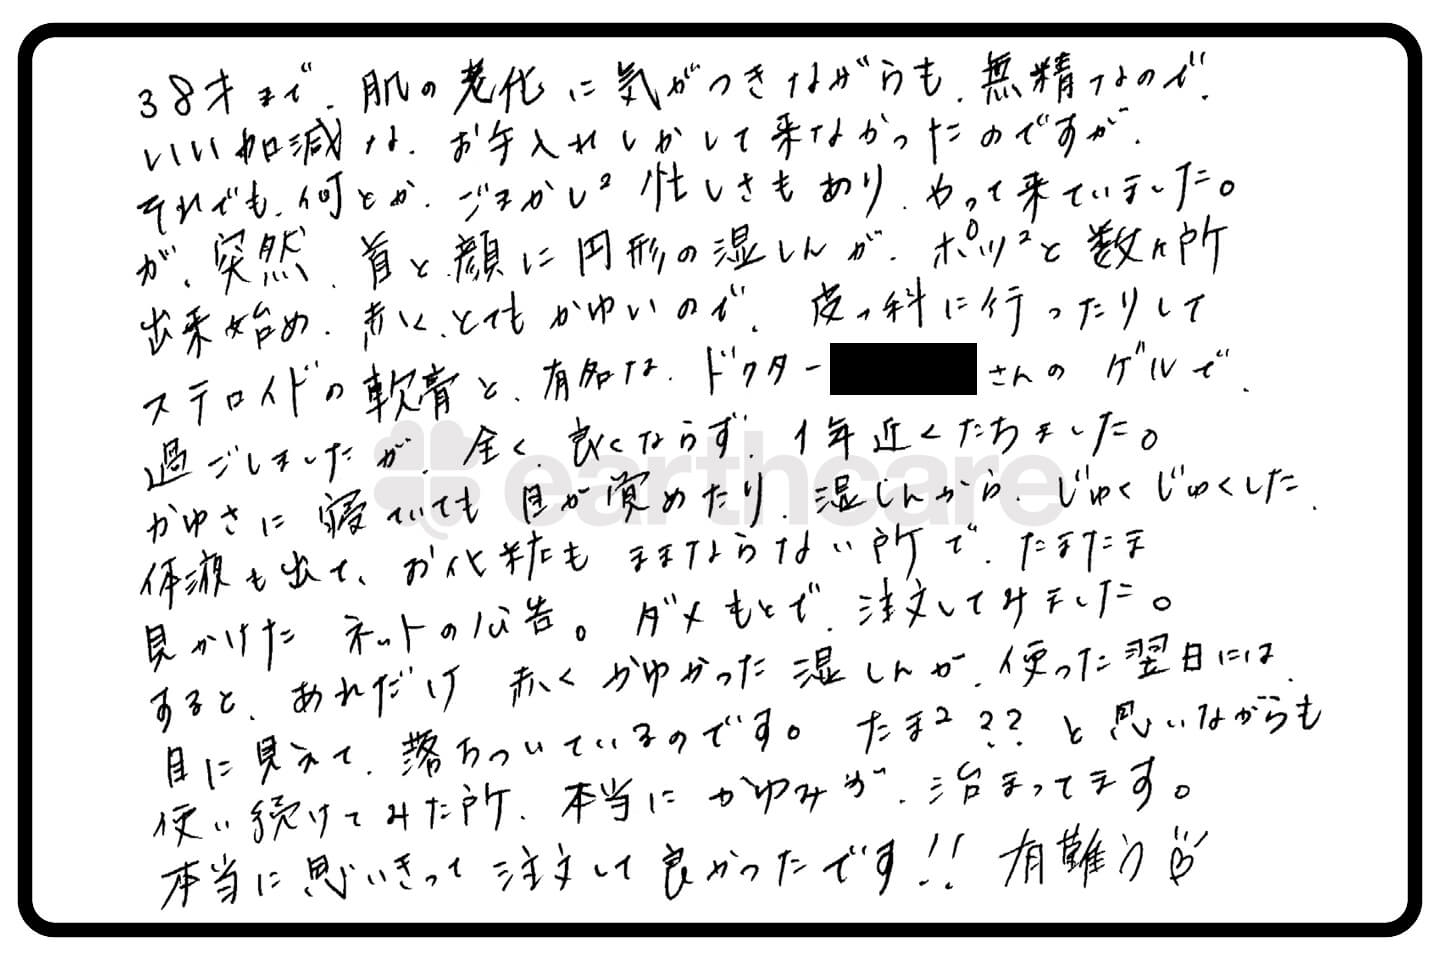 38才まで、肌の老化に気がつきながらも、無精なので、
いい加減な、お手入れしかして来なかったのですが、
それでも、何とか、ごまかし² 忙しさもあり、やって来ていました。
が、突然、首と顔に円形の湿しんが、ポツ²と数ヶ所
出来始め、赤く、とてもかゆいので、皮フ科に行ったりして
ステロイドの軟膏と、有名な、ドクター さんのゲルで、
過ごしましたが、全く、良くならず、1年近くたちました。
かゆさに寝ていても目が覚めたり、湿しんから、じゅくじゅくした、
体液も出て、お化粧もままならない所で、たまたま
見かけたネットの公告。ダメもとで、注文してみました。
すると、あれだけ赤くかゆかった湿しんが、使った翌日には、
目に見えて、落ちついているのです。たま²??と思いながらも
使い続けてみた所、本当にかゆみが、治まってます。
本当に思いきって注文して良かったです!!有難う♡
earthcare